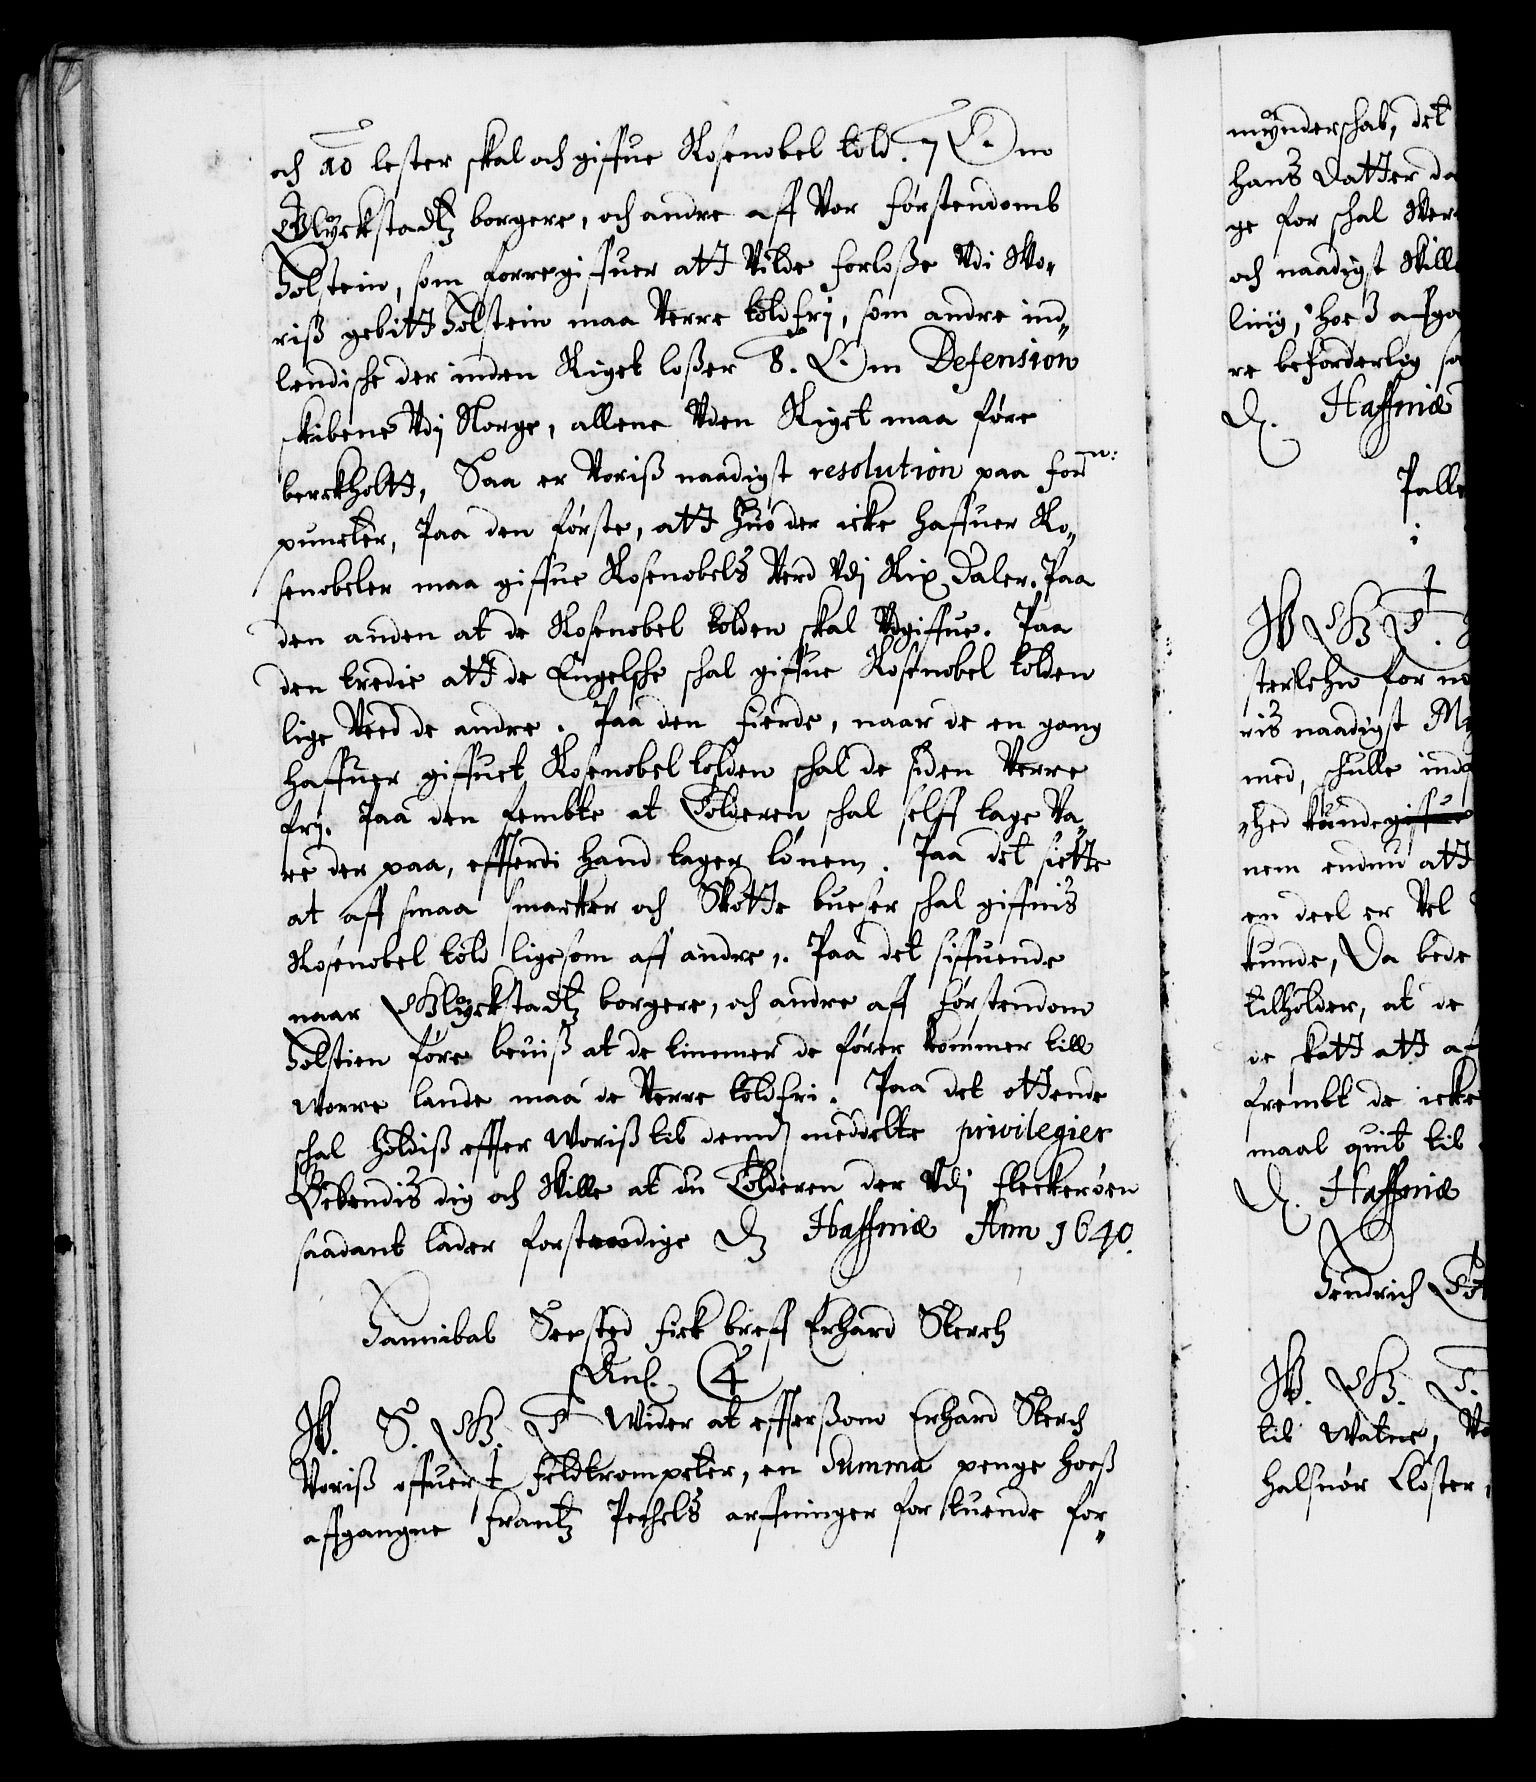 och 20 lester skal och giffue Rosenobel told. 7 Om
Glyckstadtz borgere, och andre aff Vor Førstendomb
Holstein, som forregiffuer att Vilde forloße Udi Wo-
riß gebitt Holstein maa Verre toldfrj, som andre ind-
lendische der inden Riget loßer 8. Om Defension
skibene Vdj Norge, allene Uden Riget maa føre
berckholtt, Saa er Voriß naadigst resolution paa forn:
puncter, Paa den første, att huo der icke haffuer Ro-
senobeler maa giffue Rosenobels Verd Vdj Rix Daler. Paa
den anden at de Rosenobel tolden skal Udgiffue. Paa
den tredie att de Engelsche schal giffue Rosenobel tolden
lige Ved de andre. Paa den fierde, naar de en gang
haffuer giffuet Rosenobel tolden schal de siden Verre
frj. Paa den fembte at Tolderen schal selff tage Va-
re der paa, effterdi hand tager lønen. Paa det siette
at aff smaa smacker och Skotte bueser schal giffuis
Rosenobel told ligesom aff andre. Paa det siffuende
naar Glyckstadtz borgere, och andre aff Førstendom
Holstien føre beuiß at de timmer de fører kommer till
worre lande maa de Verre toldfri. Paa det ottende
schal holdiß effter Woriß til dennd meddelte privilegier
Bekendis dig och Wille at du Tolderen der Vdj Fleckerøen
saadant lader forstendige D. Haffniæ Ann 1640.
Hannibal Seested fick breff Erhard Sterch
Anl.
W. S. G. T Wider at effterßom Erhard Sterch
Voriß offuerst Feldtrompeter, en Summa penge hoeß
affgangne Frantz Pechels arffuinger forstuende for-
mynderschab, det
hans Datter da
ge for schal Ver
och naadigst Ville
liig, hoeß afga
re beforderlig sa
D. Haffniæ
Palle
i
W G T.
sterlehn for no
ris naadigst M
med, schulle ind
hed kunde giffue
nem endnu att
en deel er Vel
kunde, Da bede
tilholder, at de
de skatt att af
frembt de icke
maal quit til
D. Haffniæ
Hendrich
W. G. T.
til Watne, Vo
halsnør Closter